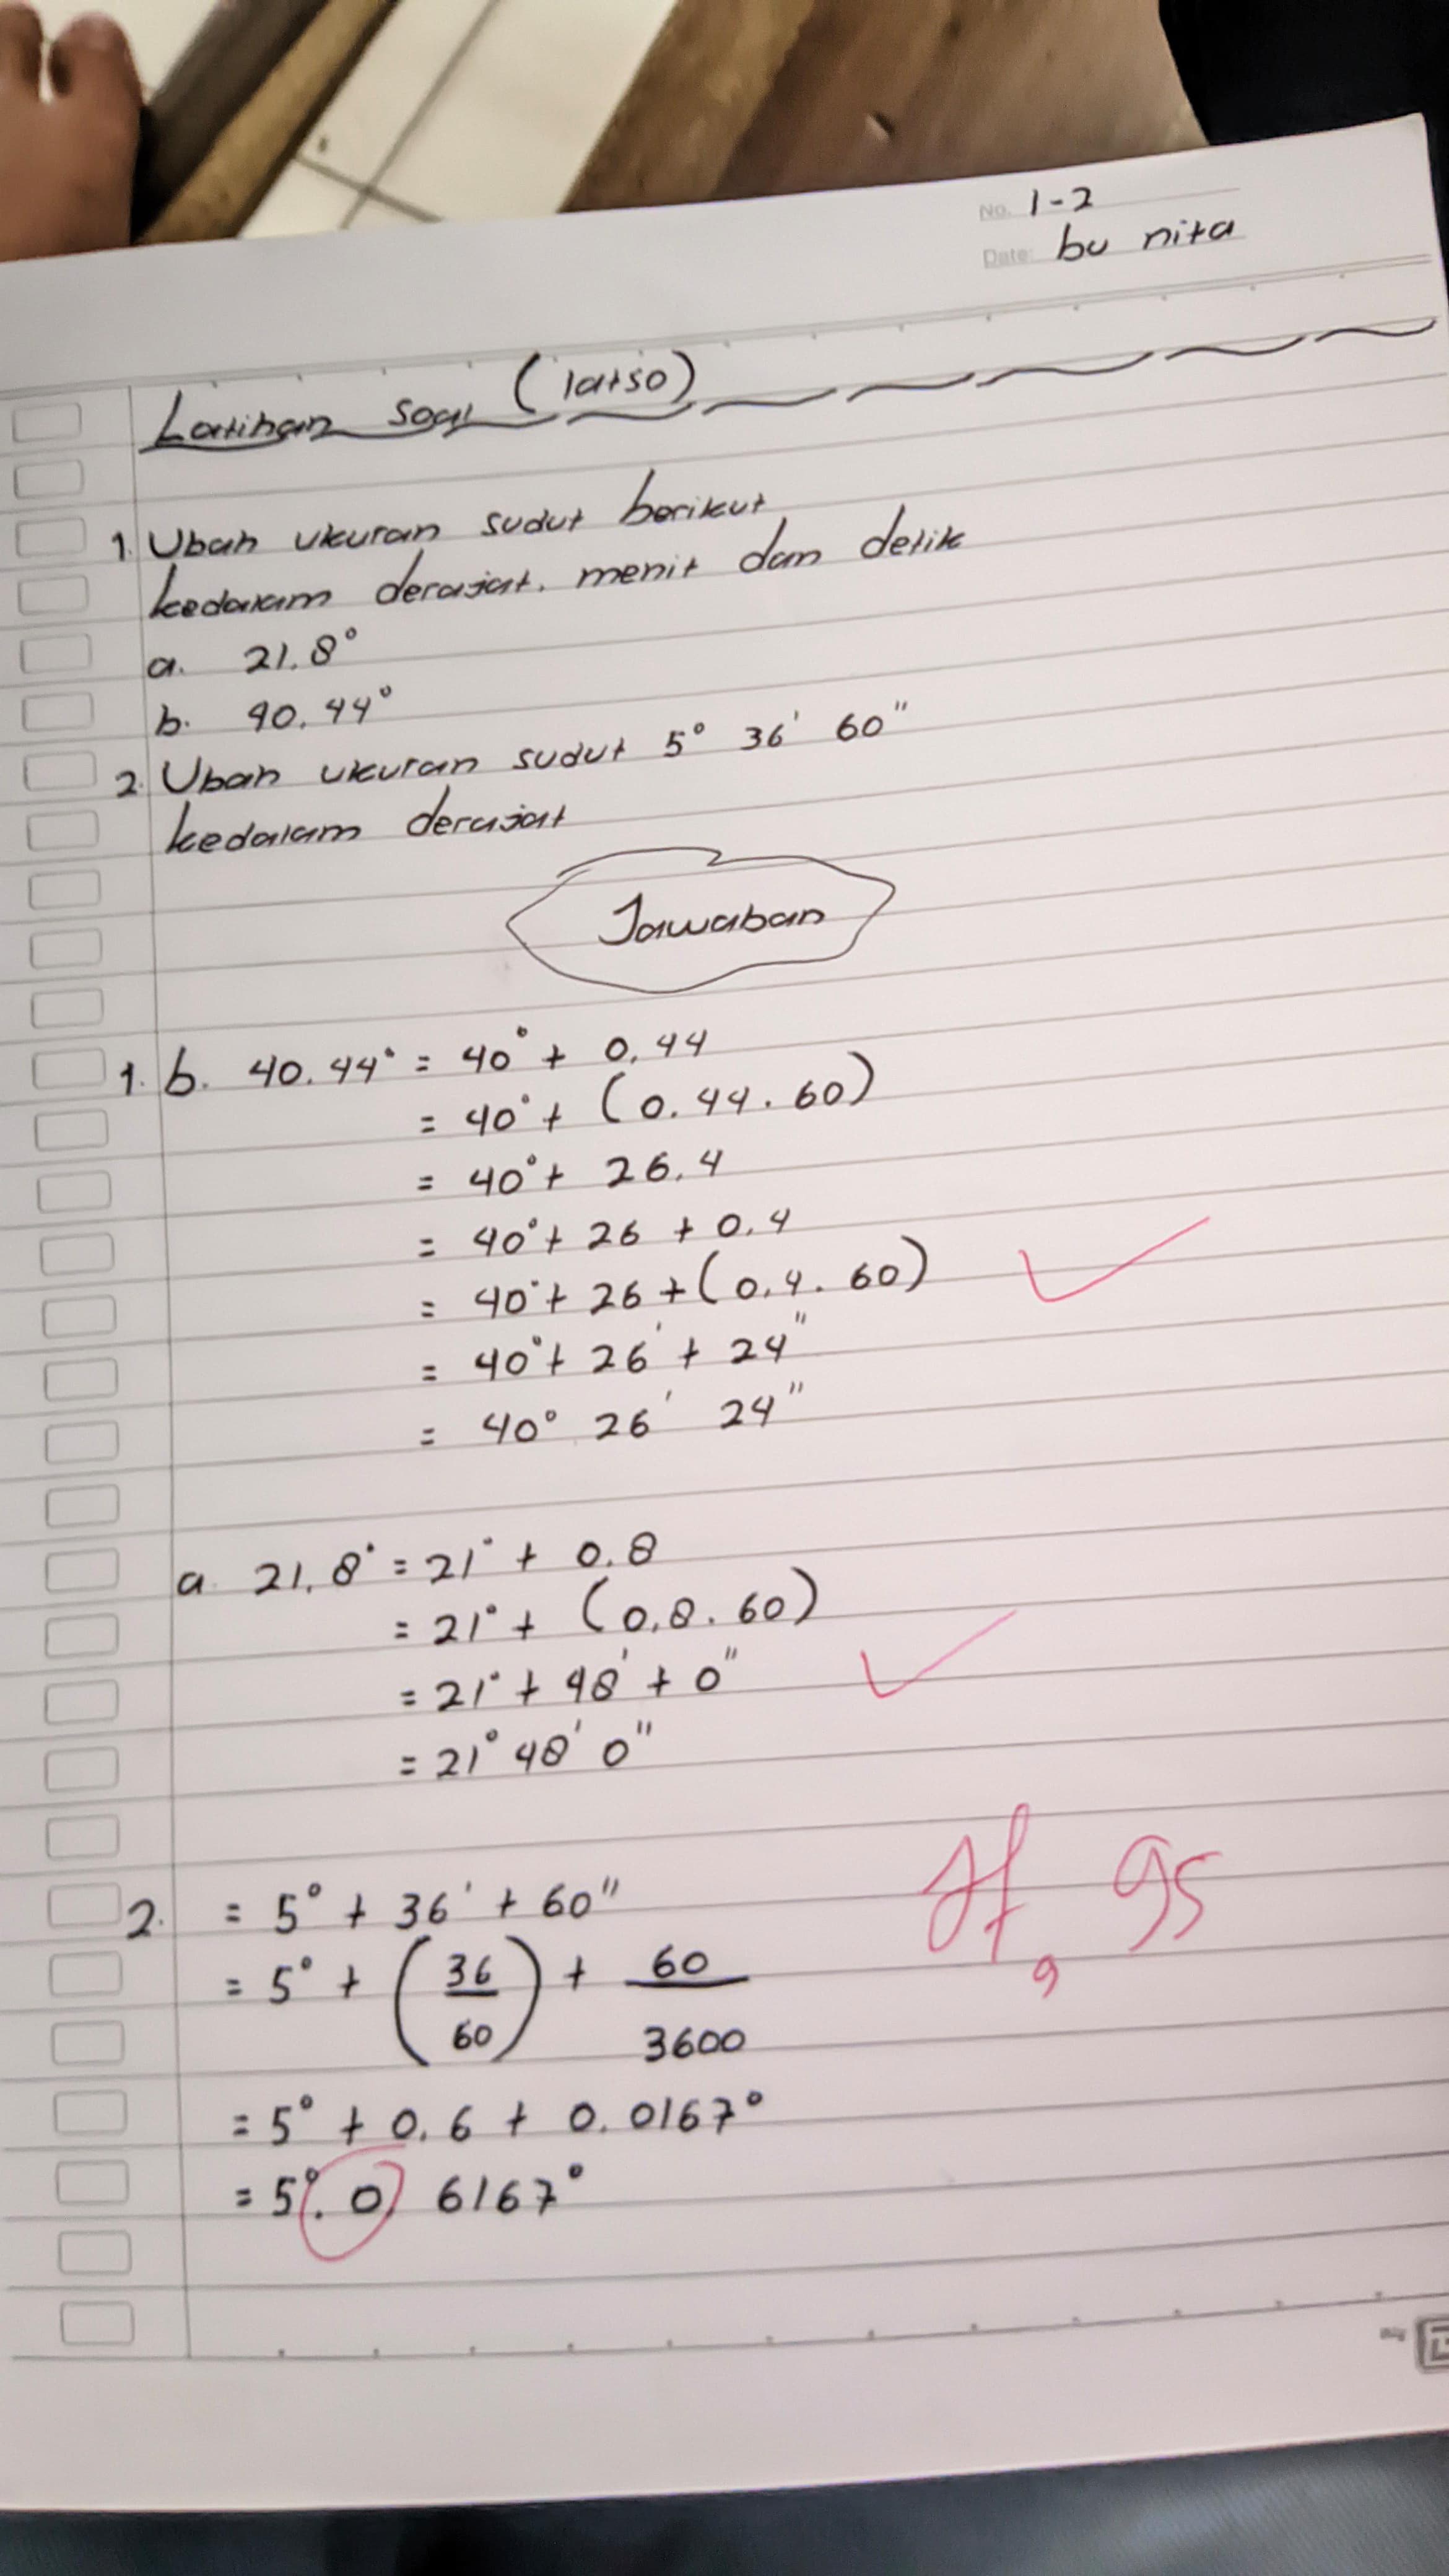 No. 1-2
Date: bu nita
Latihan soal (latso)
1. Ubah ukuran sudut berikut
kedalam derajat, menit dan detik
a. 21.8°
b. 40.44°
2. Ubah ukuran sudut 5° 36' 60"
kedalam derajat
Jawaban
1. b. 40.44° = 40° + 0.44
= 40° + (0.44 . 60)
= 40° + 26.4
= 40° + 26 + 0.4
= 40° + 26 + (0.4 . 60)
= 40° + 26' + 24"
= 40° 26' 24"
a. 21.8° = 21° + 0.8
= 21° + (0.8 . 60)
= 21° + 48' + 0"
= 21° 48' 0"
2. = 5° + 36' + 60"
= 5° + (36/60) + 60/3600
= 5° + 0.6 + 0.0167°
= 5°. 0, 6167°
95